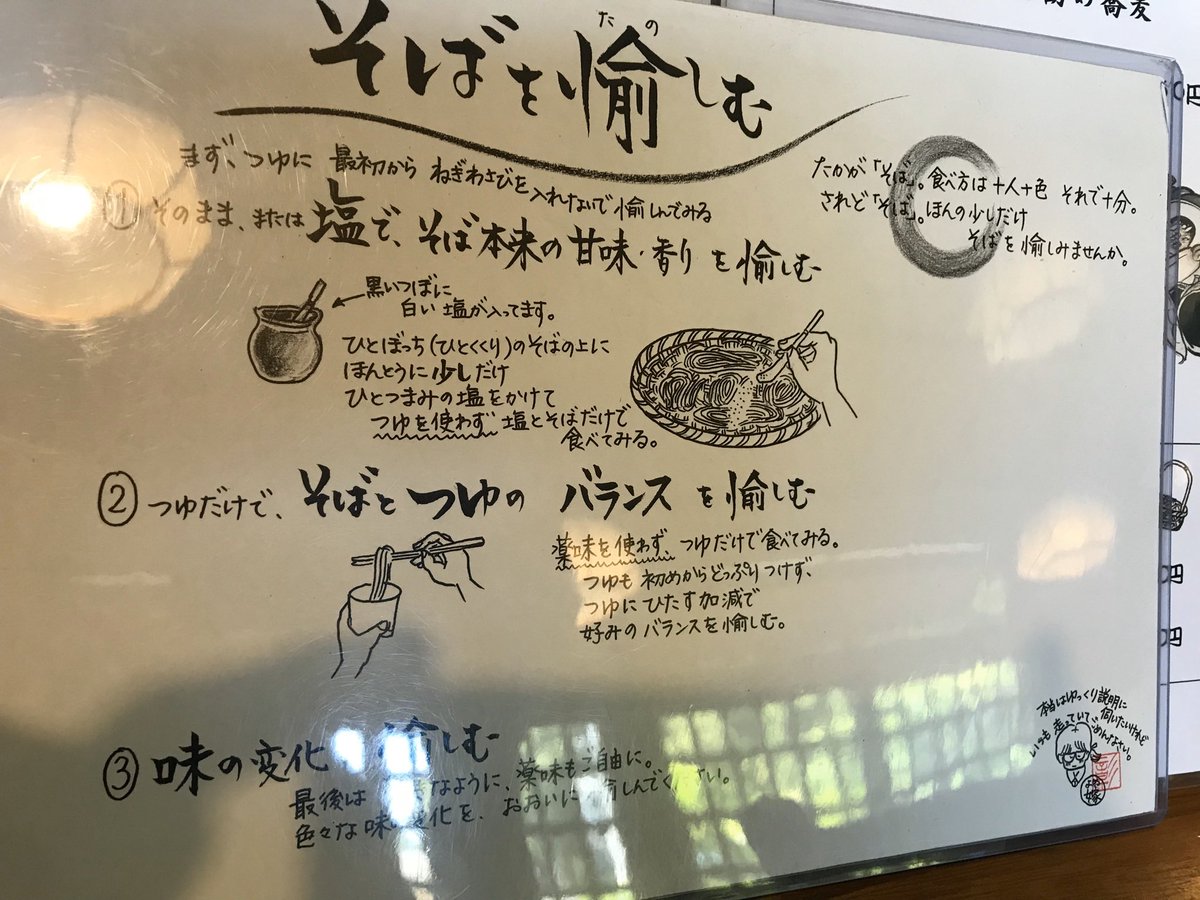 そばを愉しむ
たの
たかが「そば」。食べ方は十人十色 それで十分。
されど「そば」。ほんの少しだけ
そばを愉しみませんか。
まず、つゆに 最初から ねぎわさびを入れないで愉しんでみる
① そのまま、または塩で、そば本来の甘味・香りを愉しむ
黒いつぼに
白い塩が入ってます。
ひとぼっち(ひとくくり)のそばの上に
ほんとうに少しだけ
ひとつまみの塩をかけて
つゆを使わず 塩とそばだけで
食べてみる。
② つゆだけで、そばとつゆの バランスを愉しむ
薬味を使わず、つゆだけで食べてみる。
つゆも 初めからどっぷりつけず、
つゆにひたす加減で
好みのバランスを愉しむ。
③ 味の変化 愉しむ
最後は なように、薬味もご自由に。
色々な味 変化を、おおいに愉しんでください。
本当はゆっくり説明に
伺いたいけれど
いつも走っていて
ごめんなさい。
蕎麦
円
円
円